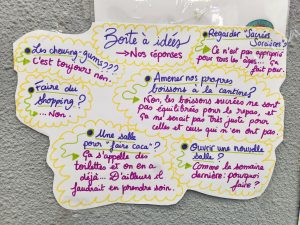 Boîte à idées
→ Nos réponses
Les chewing-gums???
C'est toujours non.
Regarder "Sacrées
Sorcières"
Ce n'est pas approprié
pour tous les âges... Ça
fait peur.
Faire du
shopping?
... Non.
Amener nos propres
boissons à la cantine?
Non, les boissons sucrées ne sont
pas équilibrées pour le repas, et
ça ne serait pas très juste pour
celles et ceux qui n'en ont pas.
Une salle
pour "faire caca"?
Ça s'appelle des
toilettes et on en a
déjà... D'ailleurs il
faudrait en prendre soin.
Ouvrir une nouvelle
salle?
Comme la semaine
dernière: pourquoi
faire?